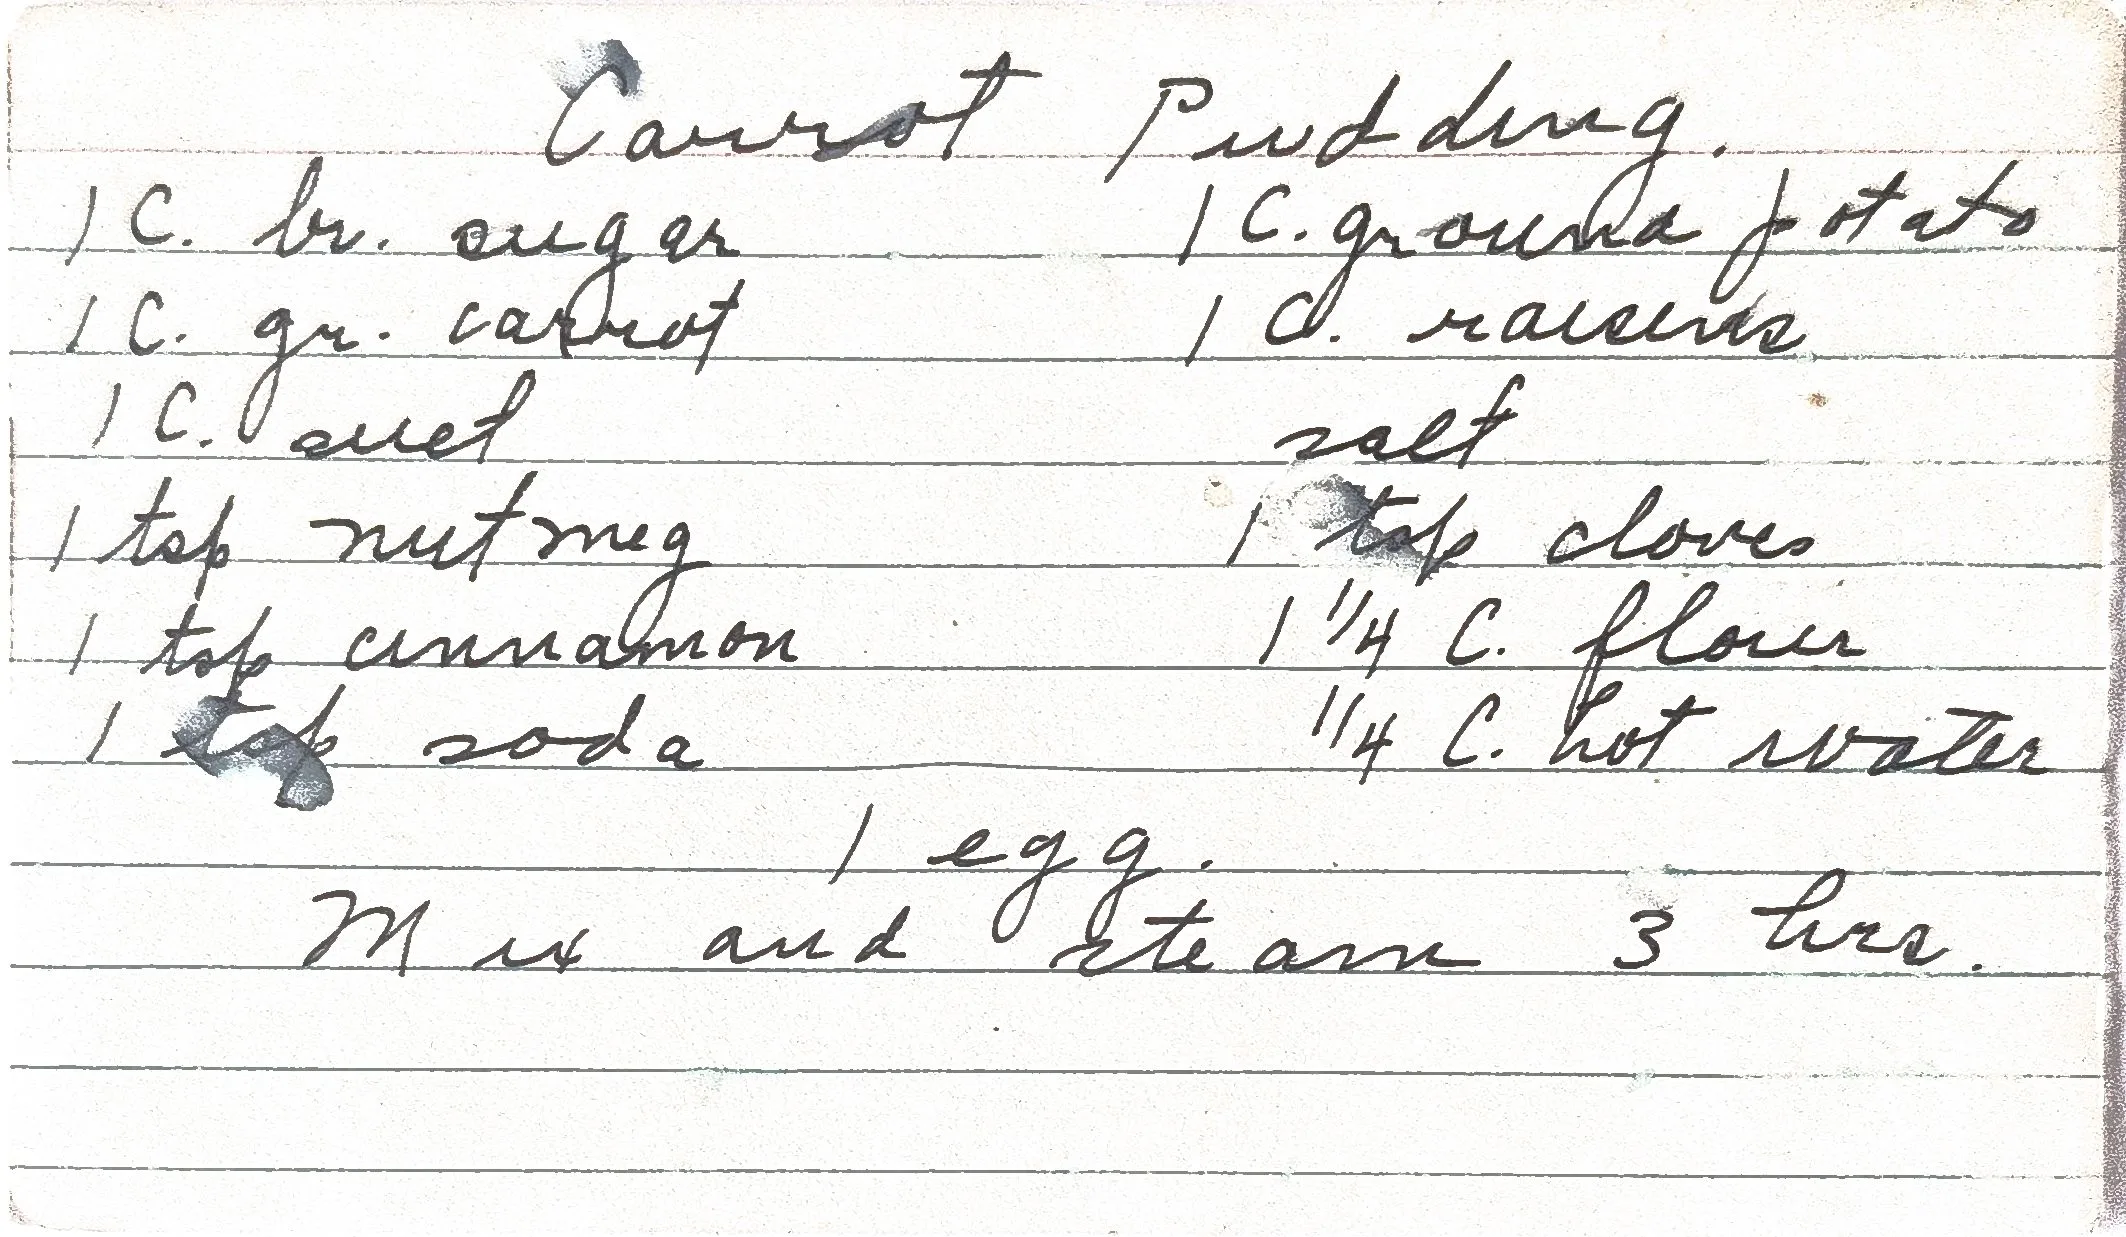 Carrot Pudding.
1 C. br. sugar 1 C. ground potato
1 C. gr. carrot 1 C. raisins
1 C. suet salt
1 tsp nutmeg 1 tsp cloves
1 tsp cinnamon 1 1/4 C. flour
1 tsp soda 1/4 C. hot water
1 egg.
Mix and steam 3 hrs.